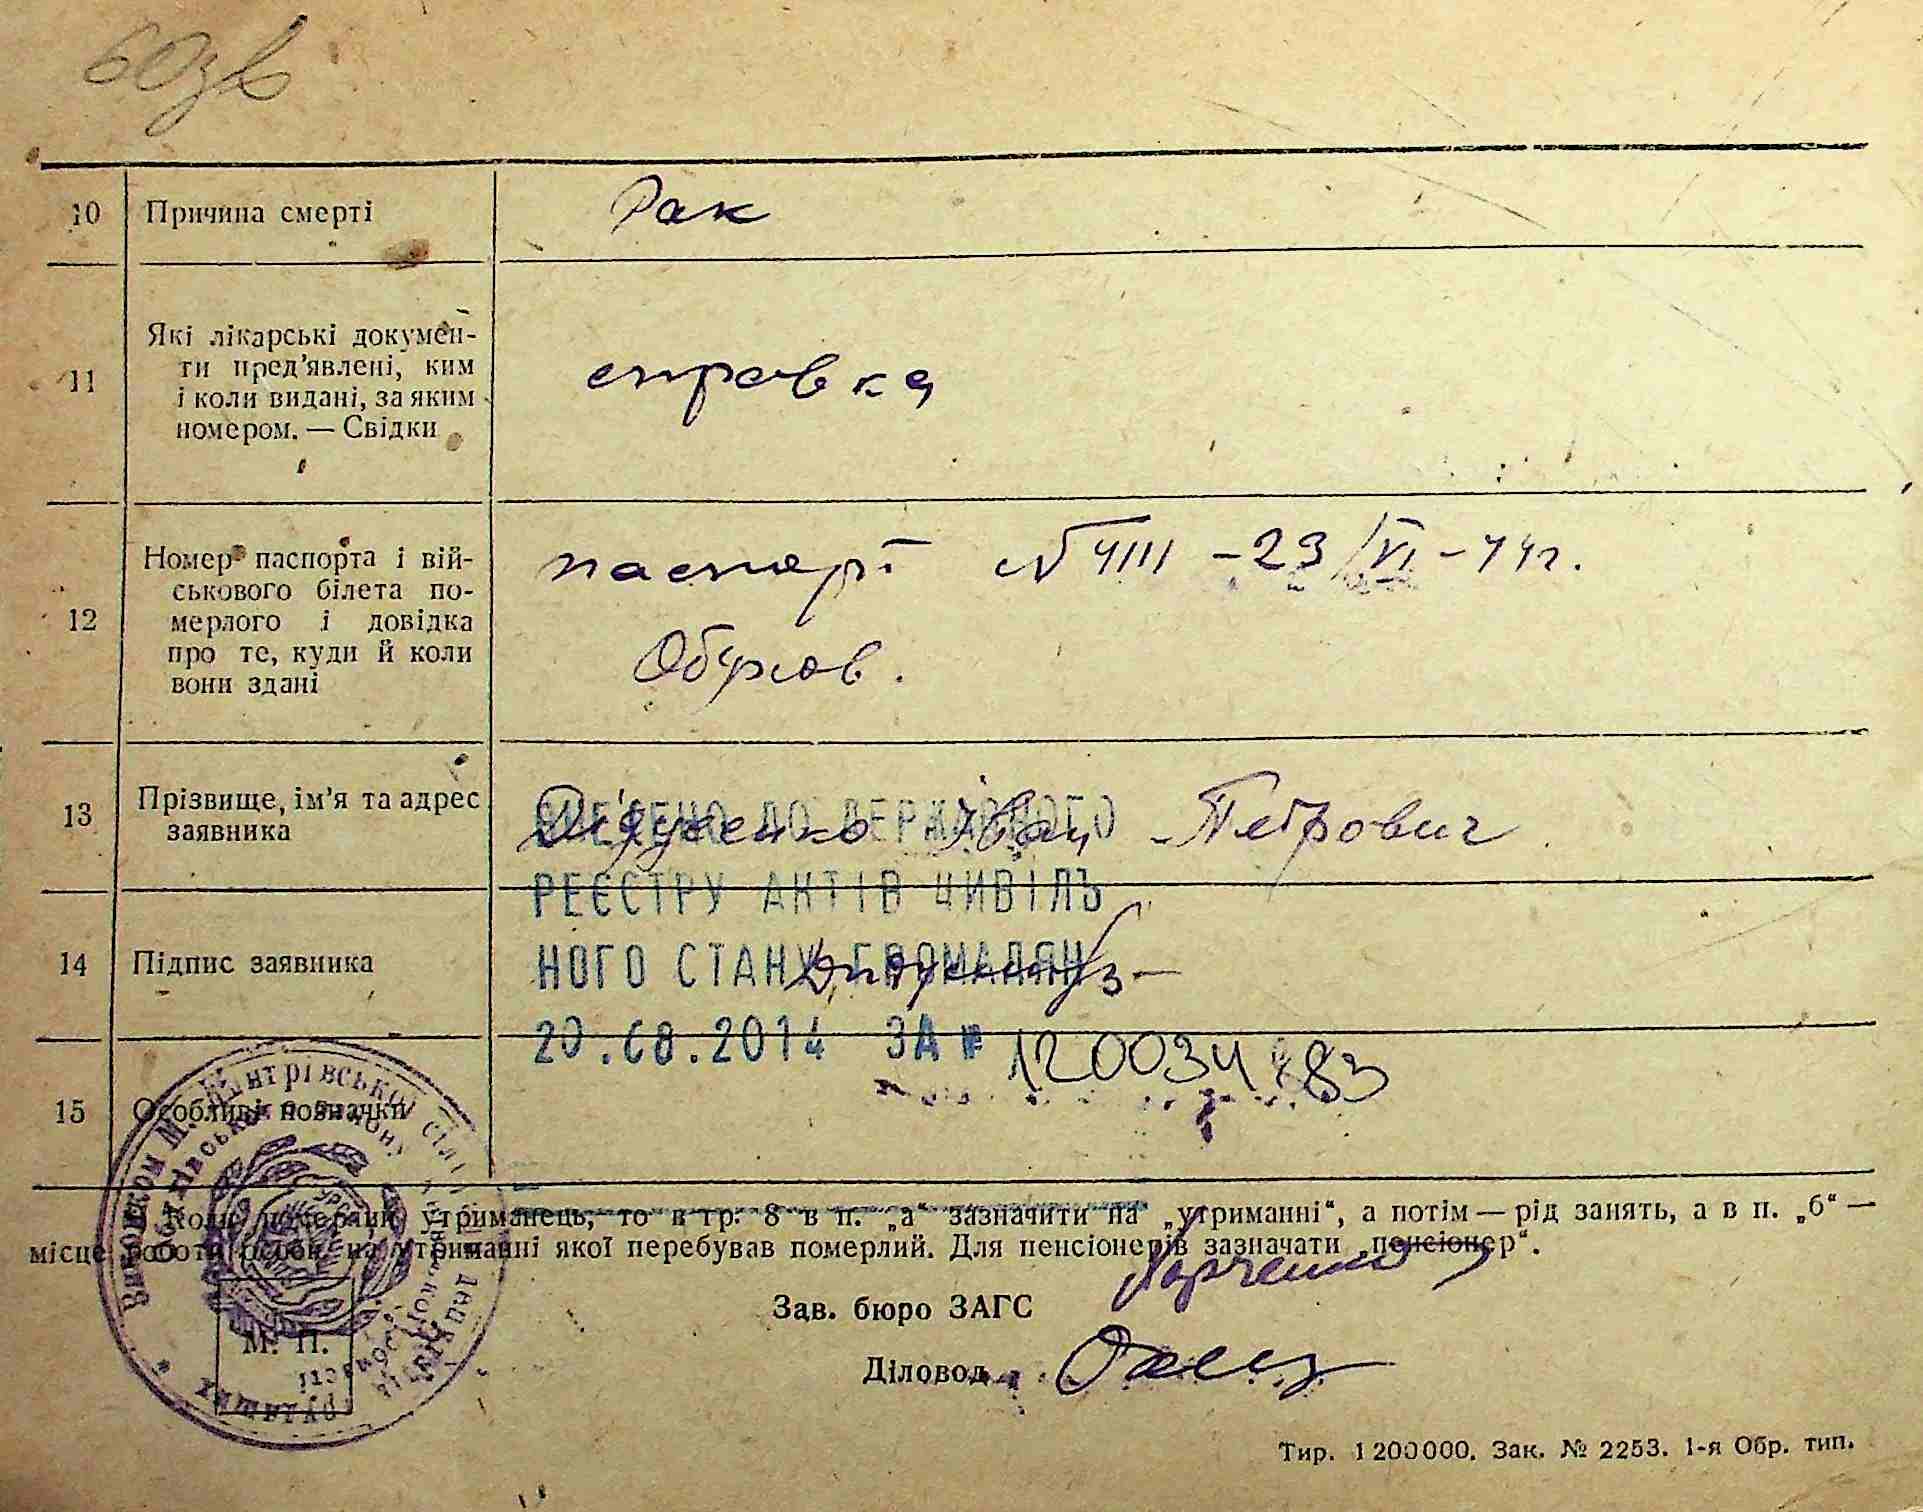 10 Причина смерті Рак
11 Які лікарські докумен-
ти пред'явлені, ким
і коли видані, за яким
номером. — Свідки
справка
12 Номер паспорта і вій-
ськового білета по-
мерлого і довідка
про те, куди й коли
вони здані
паспорт №
Обухов.
13 Прізвище, ім'я та адрес
заявника
Діденко Іван Петрович
ВНЕСЕНО ДО ДЕРЖАВНОГО
РЕЄСТРУ АКТІВ ЦИВІЛЬ
14 Підпис заявника
НОГО СТАНУ ГРОМАДЯН
20.08.2014 ЗА №
15 Особливі позначки
Виконком М. Дмитрівської сільської Ради
Коли померлий утриманець, то в гр. 8 в п. „а“ зазначити на „утриманні“, а потім — рід занять, а в п. „б“ —
місце роботи особи, на утриманні якої перебував померлий. Для пенсіонерів зазначати „пенсіонер“.
Зав. бюро ЗАГС
Діловод
М. П.
Тир. 1200000. Зак. № 2253. 1-я Обр. тип.